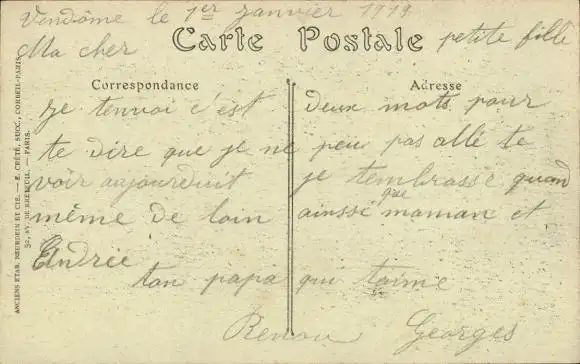 Vendôme le 1er Janvier 1919
Ma cher petite fille
Carte Postale
Correspondance
Adresse
je tenvoi c'est deux mots pour
te dire que je ne peu pas allé te
voir aujourduit je tembrasse quand
même de loin ainssi que maman et
Andrée
ton papa qui taime
Renou Georges
ANCIENS ETAB. NEURDEIN ET CIE. — E. CRÉTÉ, SUCC., CORBEIL-PARIS.
52, AV. DE BRETEUIL. — PARIS.